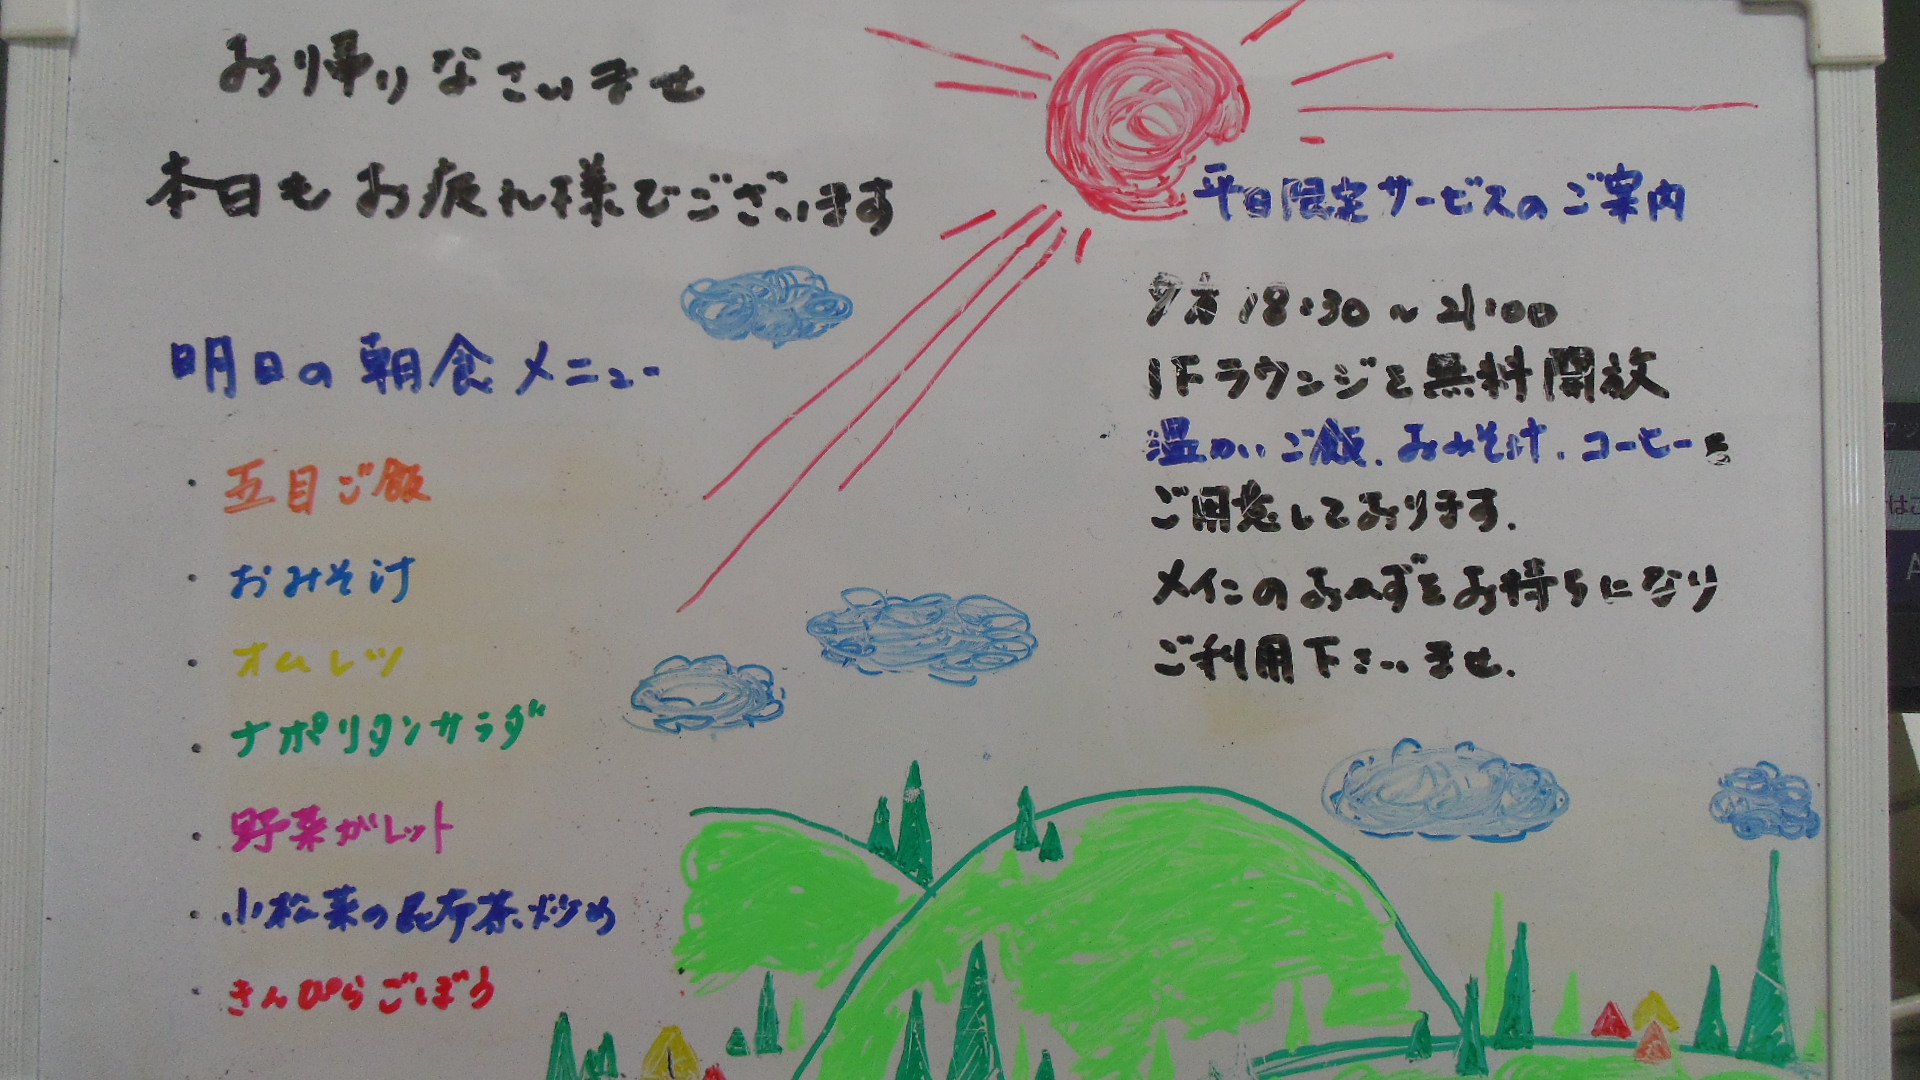 お帰りなさいませ
本日もお疲れ様でございます
明日の朝食メニュー
・五目ご飯
・おみそ汁
・オムレツ
・ナポリタンサラダ
・野菜ガレット
・小松菜の昆布茶炒め
・きんぴらごぼう
平日限定サービスのご案内
夕方 18:30～21:00
1Fラウンジを無料開放
温かいご飯、おみそ汁、コーヒーを
ご用意しております。
メインのおかずをお持ちになり
ご利用下さいませ。